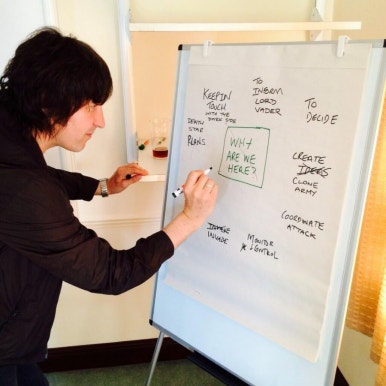 KEEP IN
TOUCH
WITH THE
DARK SIDE
TO
INFORM
LORD
VADER
TO
DECIDE
DEATH
STAR
PLANS
WHY
ARE WE
HERE?
CREATE
IDEAS
CLONE
ARMY
COORDINATE
ATTACK
MONITOR
+ CONTROL
INVADE